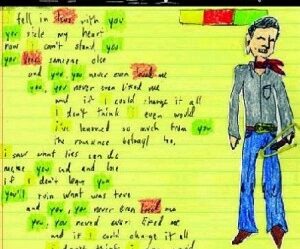 I fell in love with you
you stole my heart
now i can't stand you
you love someone else
and you, you never even loved me
you, you never even liked me
and if i could change it all
i don't think i even would
i've learned so much from you
the romance betrayl
i saw what lies can do
you and
if i don't you
you'll ruin what was true
and you, you never even loved me
you, you never even liked me
and if i could change it all
i don't think i